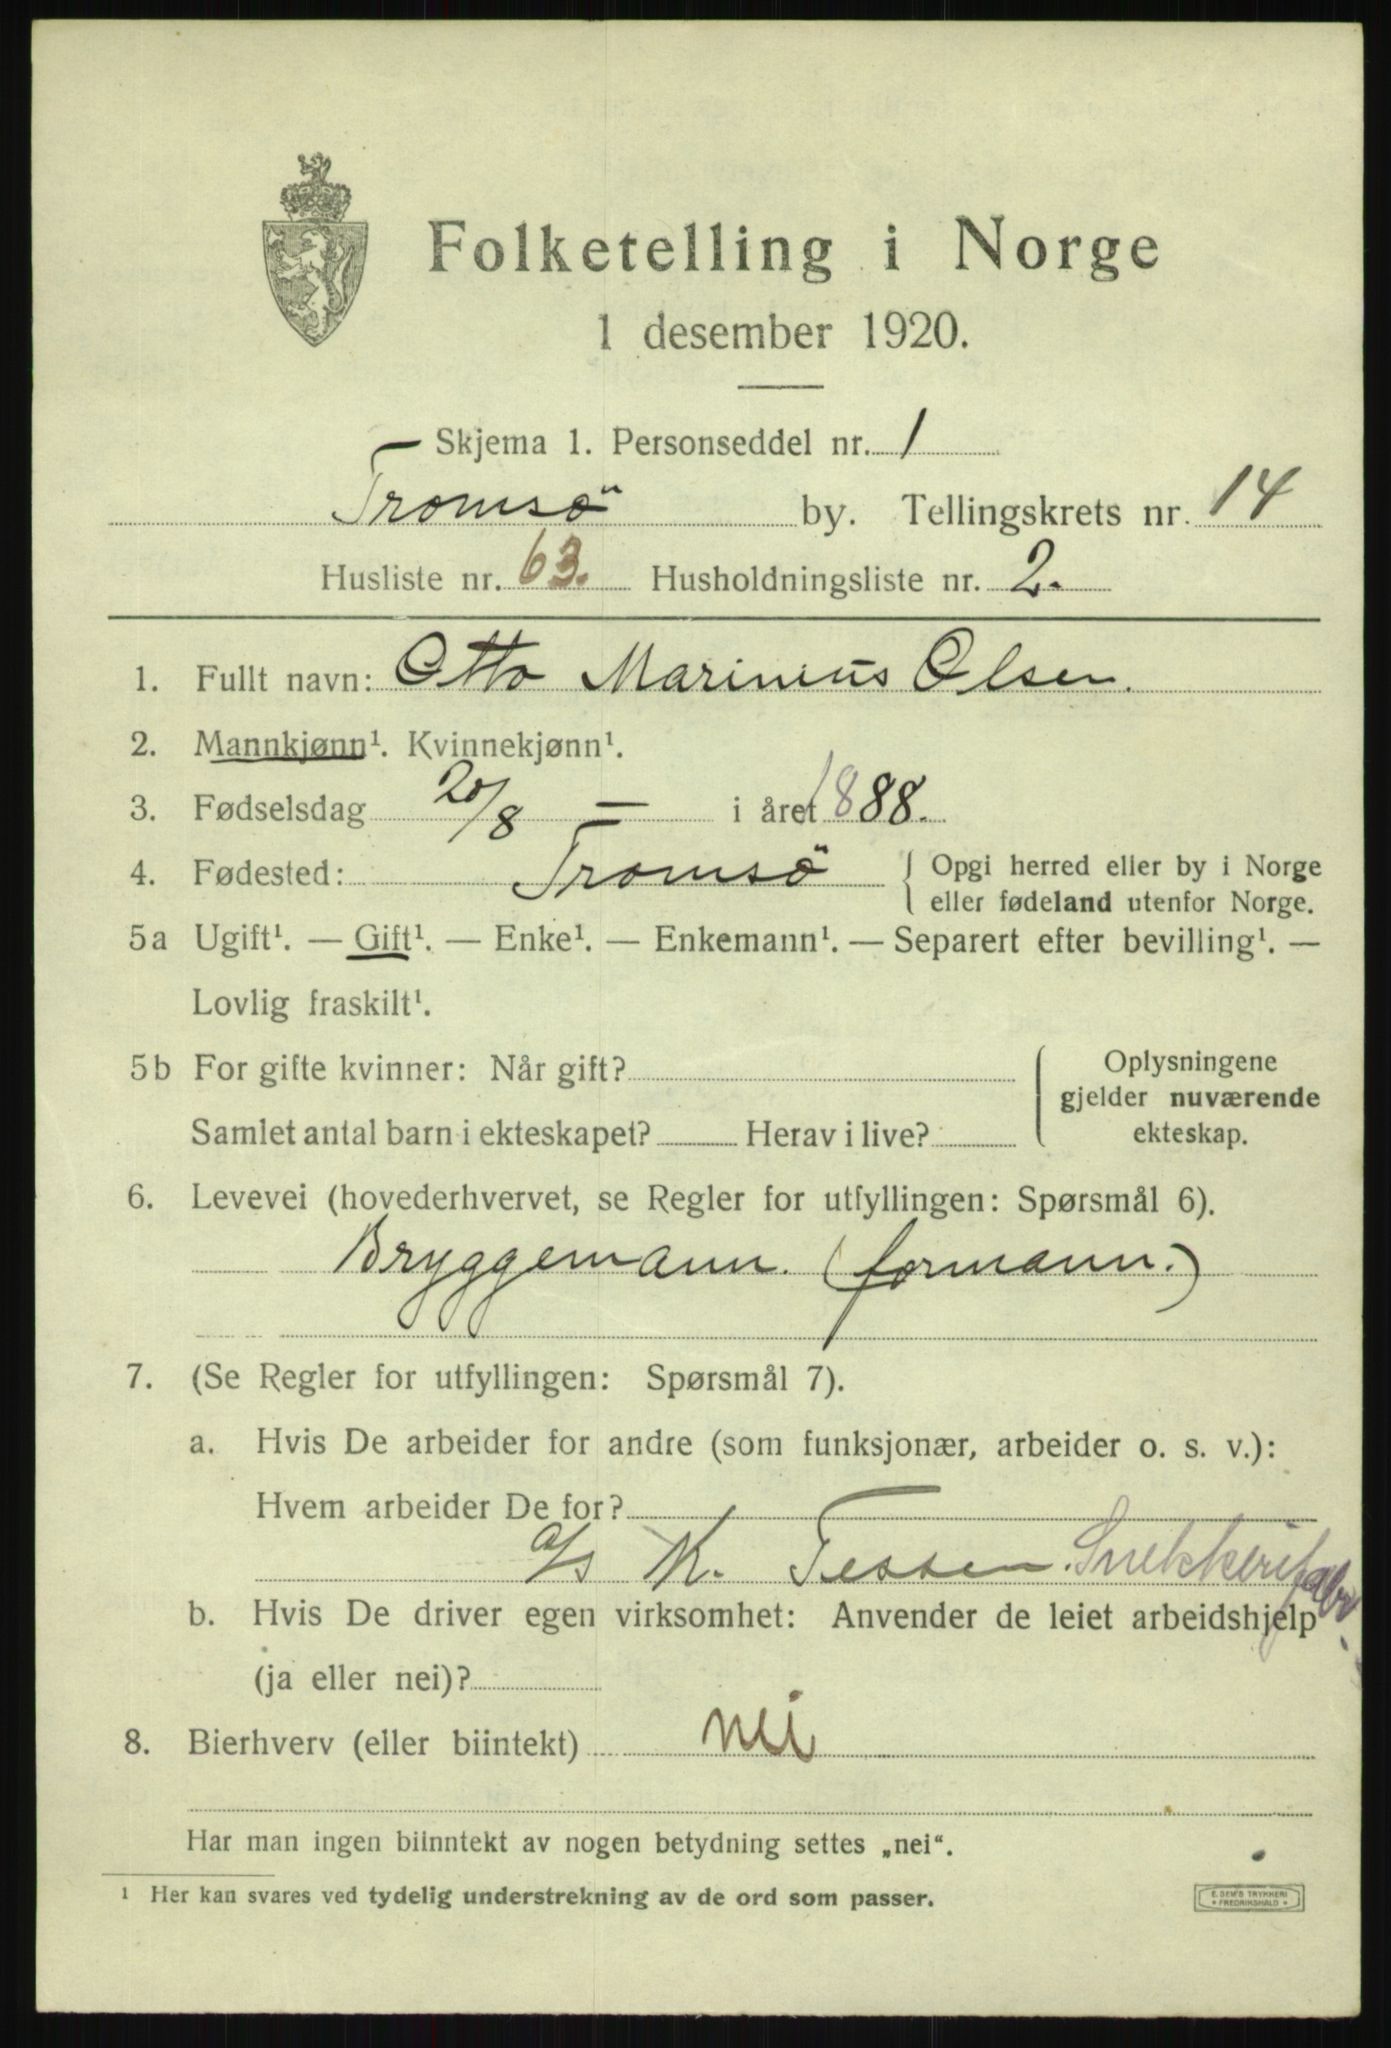 Folketelling i Norge
1 desember 1920.
Skjema 1. Personseddel nr. 1
Tromsö by. Tellingskrets nr. 14
Husliste nr. 63. Husholdningsliste nr. 2.
1. Fullt navn: Otto Marinius Olsen.
2. Mannkjønn¹. Kvinnekjønn¹.
3. Fødselsdag 20/8 — i året 1888.
4. Fødested: Tromsö { Opgi herred eller by i Norge
eller fødeland utenfor Norge.
5a Ugift¹. — Gift¹. — Enke¹. — Enkemann¹. — Separert efter bevilling¹. —
Lovlig fraskilt¹.
5b For gifte kvinner: Når gift?
Samlet antal barn i ekteskapet? Herav i live?
Oplysningene
gjelder nuværende
ekteskap.
6. Levevei (hovederhvervet, se Regler for utfyllingen: Spørsmål 6).
Bryggemann. (formann.)
7. (Se Regler for utfyllingen: Spørsmål 7).
a. Hvis De arbeider for andre (som funksjonær, arbeider o. s. v.):
Hvem arbeider De for?
a/s K. Tessem. Snekkerifabr.
b. Hvis De driver egen virksomhet: Anvender de leiet arbeidshjelp
(ja eller nei)?
8. Bierhverv (eller biintekt) nei
Har man ingen biinntekt av nogen betydning settes „nei“.
¹ Her kan svares ved tydelig understrekning av de ord som passer.
E. SEM'S TRYKKERI
• FREDRIKSHALD •